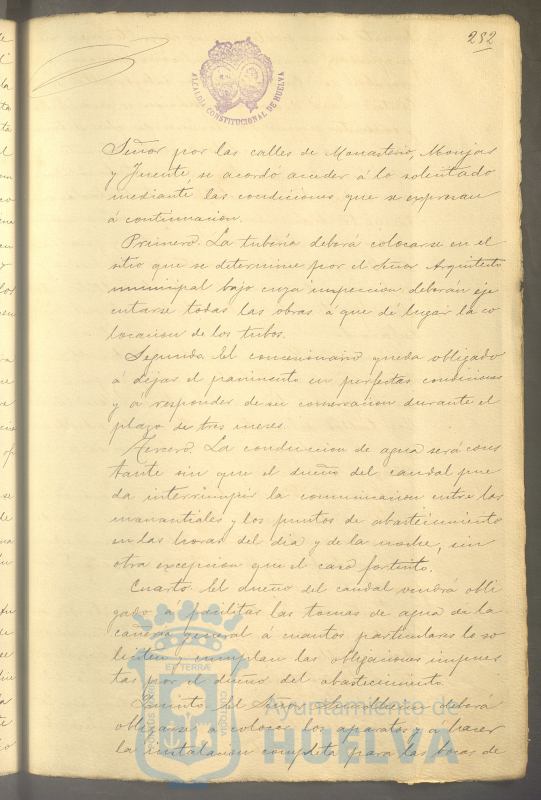 282
ALCALDÍA CONSTITUCIONAL DE HUELVA
Señor por las calles de Monasterio, Monjas
y Puente, se acordó acceder á lo solicitado
mediante las condiciones que se expresan
á continuacion.
Primero. La tubería deberá colocarse en el
sitio que se determine por el Señor Arquitecto
municipal bajo cuya inspeccion deberán eje
cutarse todas las obras á que dé lugar la co
locacion de los tubos.
Segundo. El concesionario queda obligado
á dejar el pavimento en perfectas condiciones
y á responder de su conservacion durante el
plazo de tres meses.
Tercero. La conduccion de agua será cons
tante sin que el dueño del caudal pue
da interrumpir la comunicacion entre los
manantiales y los puntos de abastecimiento
en las horas del dia y de la noche, sin
otra excepcion que el caso fortuito.
Cuarto. El dueño del caudal vendrá obli
gado a facilitar las tomas de agua de la
cañería general á cuantos particulares lo so
liciten y cumplan las obligaciones impues
tas por el dueño del abastecimiento.
Quinto. El Señor deberá
obligarse á colocar los aparatos y a hacer
la instalacion completa para las bocas de
ET TERRÆ
Ayuntamiento de
HUELVA